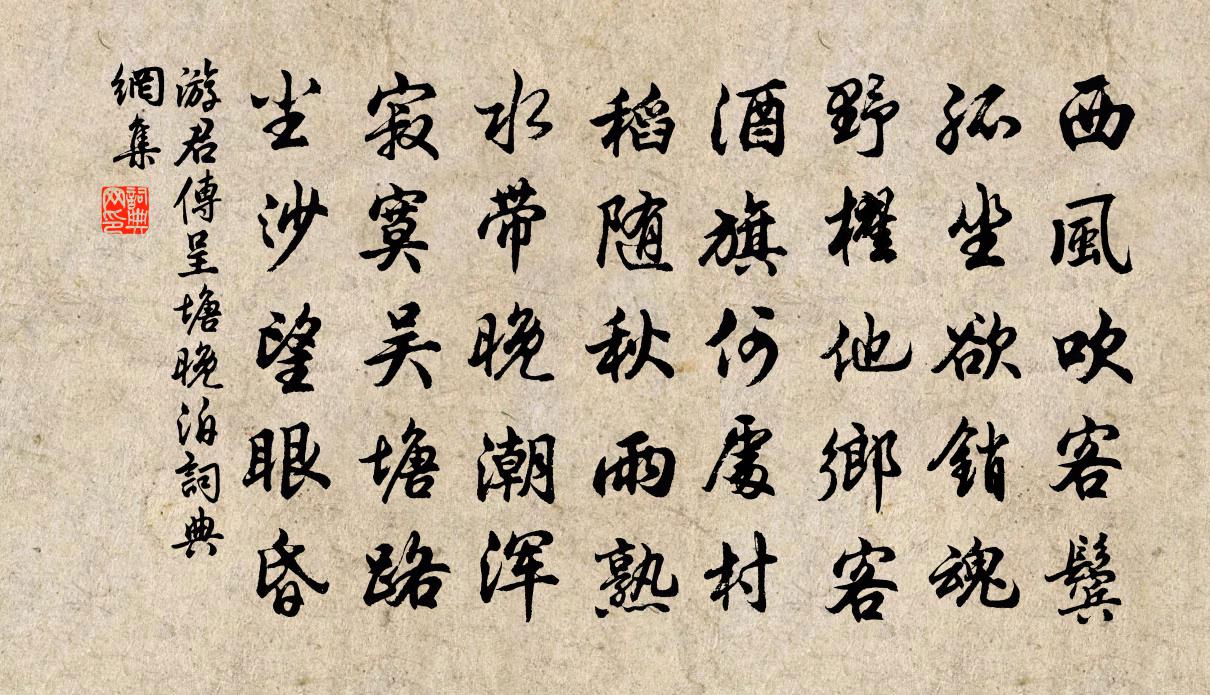 西風吹客鬢
孤坐欲銷魂
野櫂他鄉客
酒旗何處村
稻随秋雨熟
水带晚潮浑
寂寞吴塘路
尘沙望眼昏
游君傳呈塘晚泊詞典
網集
詞典
网印